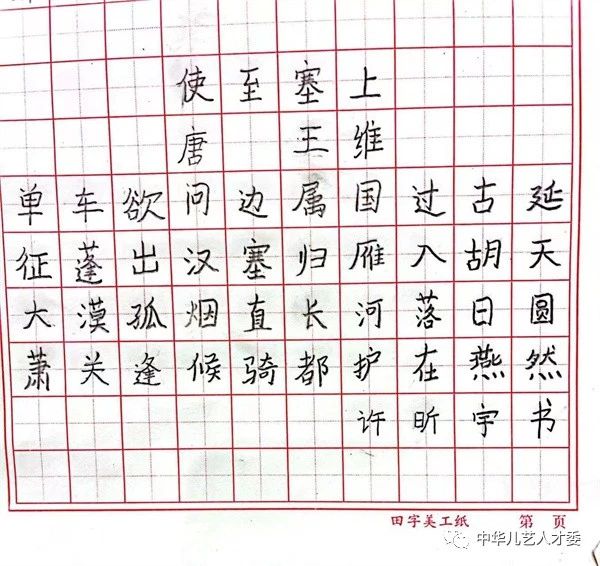 使至塞上
唐 王维
单车欲问边属国过古延
征蓬出汉塞归雁入胡天
大漠孤烟直长河落日圆
萧关逢候骑都护在燕然
许昕宇书
田字美工纸 第 页
中华儿艺人才委